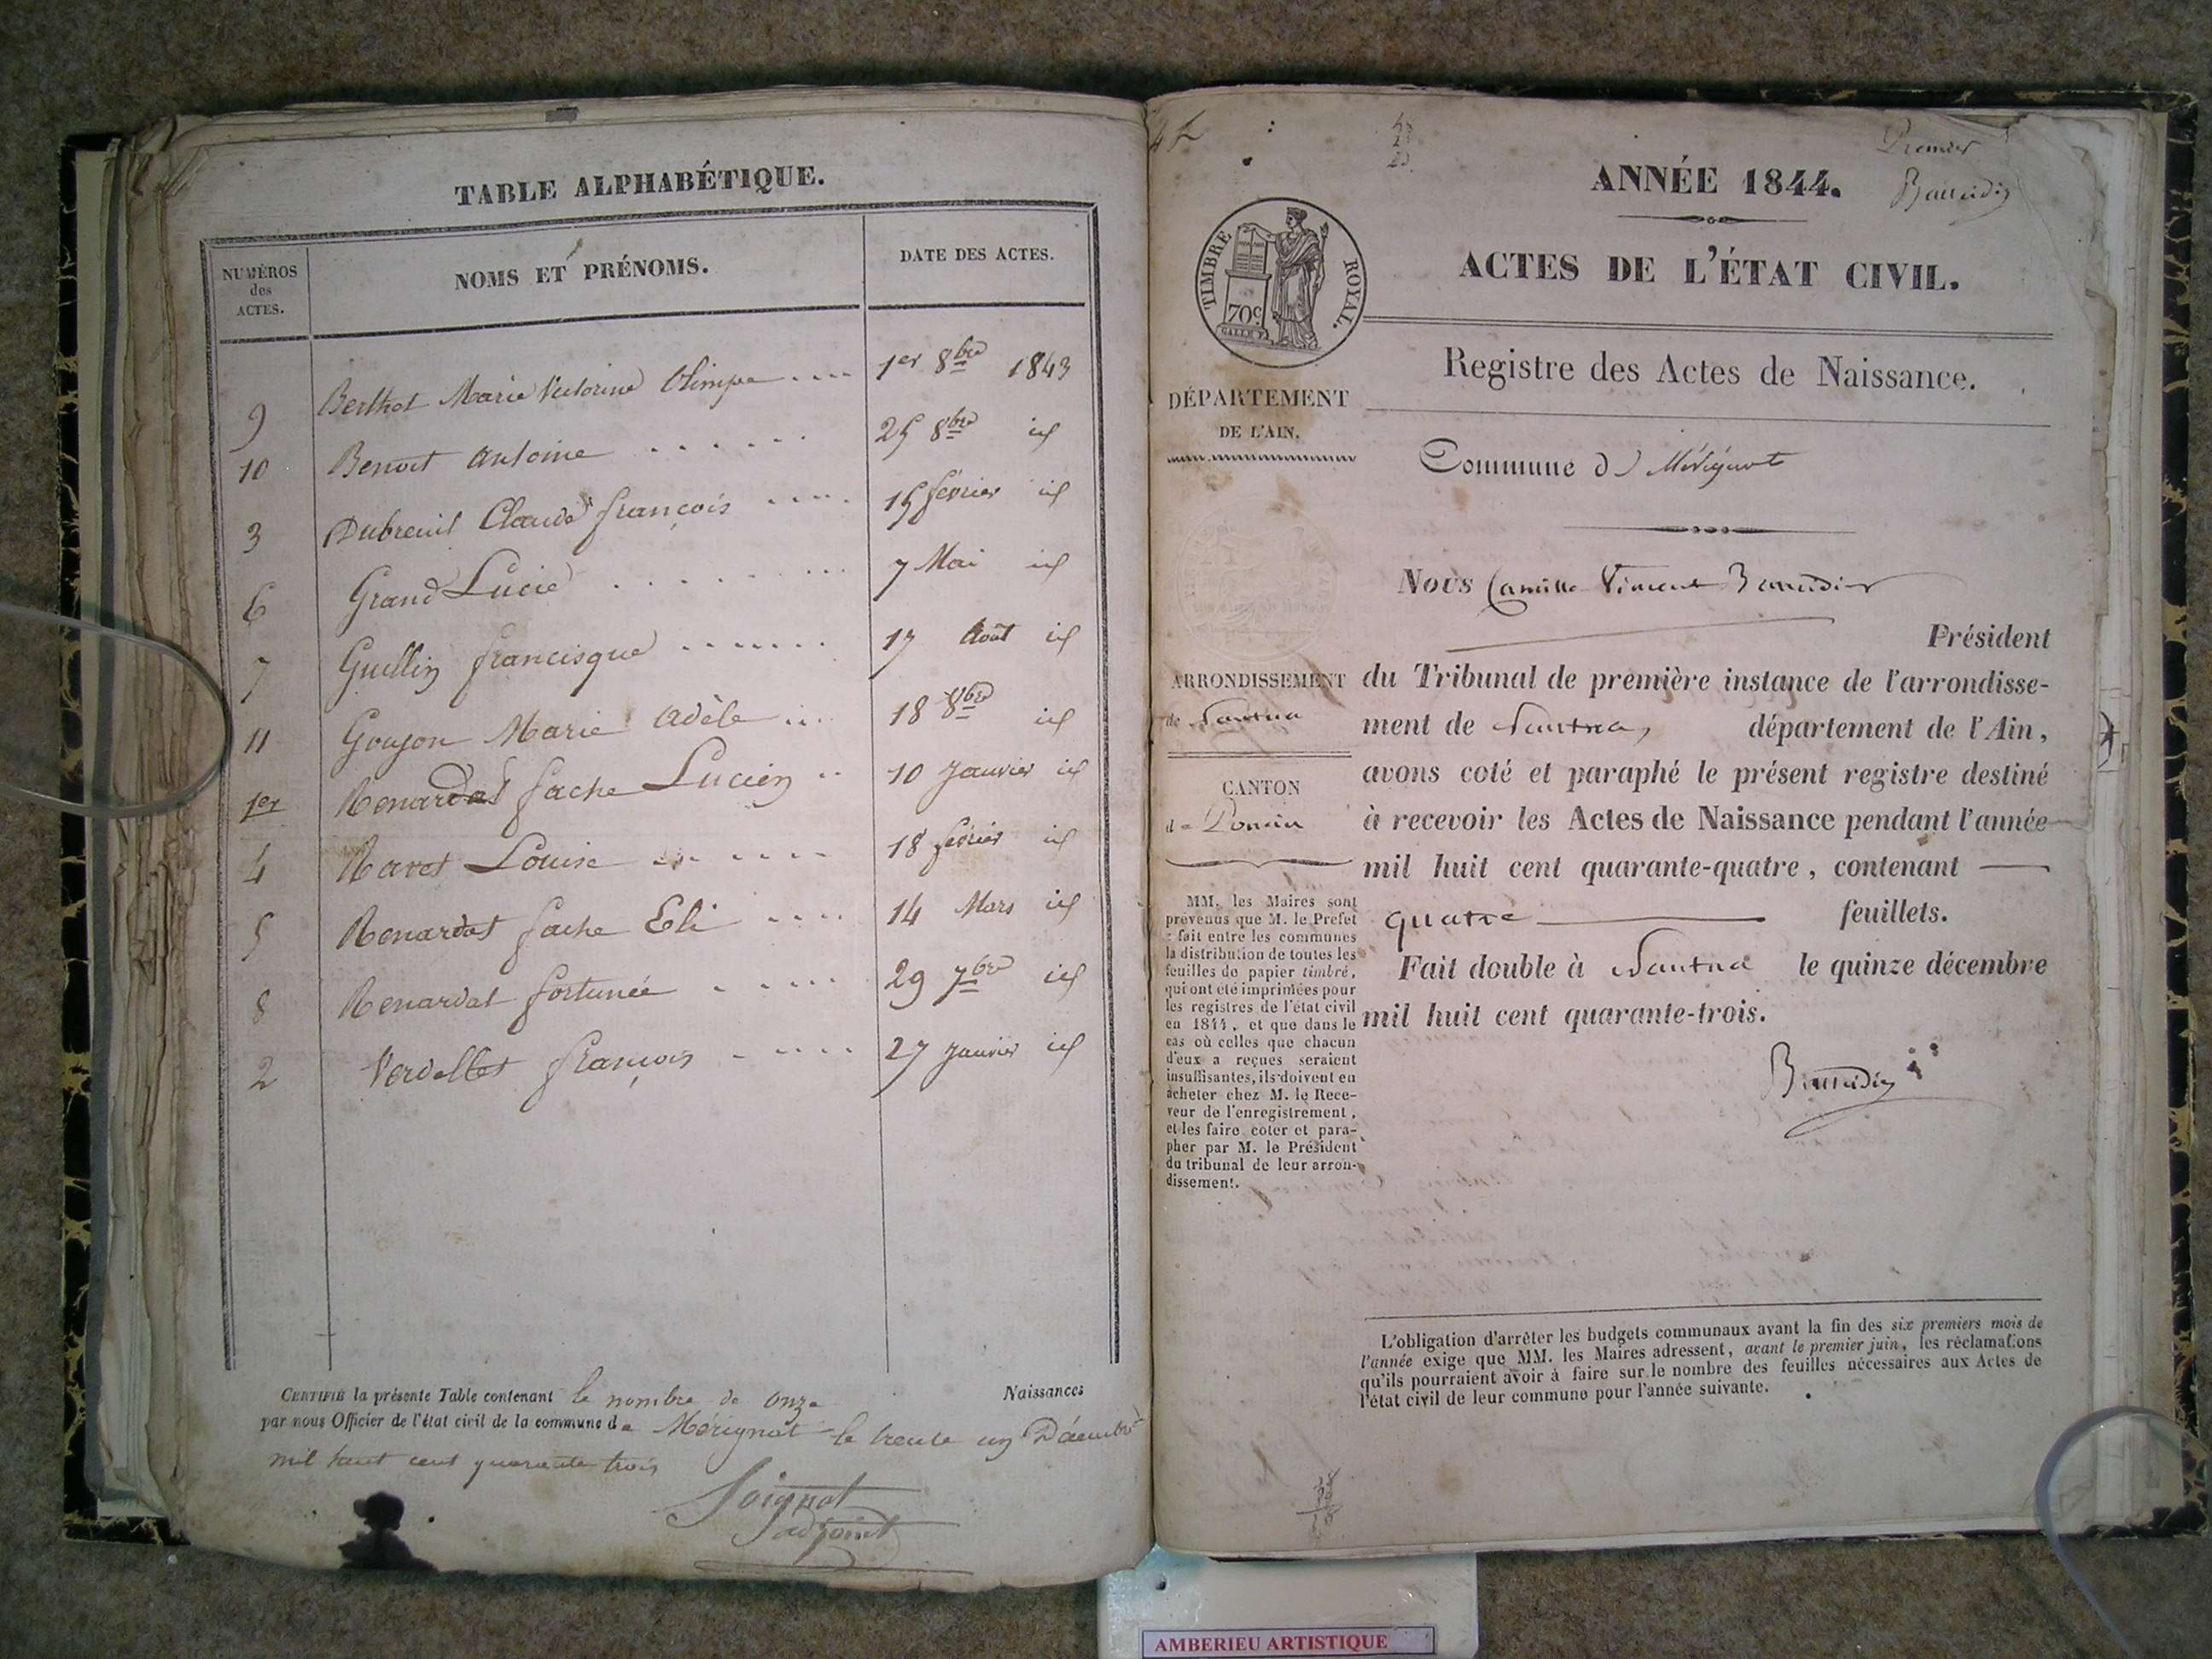 TABLE ALPHABÉTIQUE.
NUMÉROS
des
ACTES.
NOMS ET PRÉNOMS.
DATE DES ACTES.
9 Berthet Marie Victorine Olimpe 1er 8bre 1843
10 Benoit Antoine 25 8bre id
3 Dubreuil Claude françois 15 février id
6 Grand Lucie 7 Mai id
7 Guillin francisque 17 Août id
11 Goujon Marie Adèle 18 8bre id
1er Renardat fache Lucien 10 Janvier id
4 Ravet Louise 18 février id
5 Renardat fache Eli 14 Mars id
8 Renardat fortunée 29 7bre id
2 Verdellet françois 27 Janvier id
CERTIFIÉ la présente Table contenant le nombre de onze Naissances
par nous Officier de l'état civil de la commune de Mérignat le trente un Décembre
mil huit cent quarante trois
Soignat
adjoint
Premier
ANNÉE 1844.
Baudin
ACTES DE L'ÉTAT CIVIL.
TIMBRE ROYAL.
70c
Registre des Actes de Naissance.
DÉPARTEMENT
DE L'AIN.
Commune de Mérignat
Nous Camille Vincent
Président
ARRONDISSEMENT
de Nantua
CANTON
de Poncin
du Tribunal de première instance de l'arrondisse-
ment de Nantua, département de l'Ain,
avons coté et paraphé le présent registre destiné
à recevoir les Actes de Naissance pendant l'année
mil huit cent quarante-quatre, contenant
quatre feuillets.
Fait double à Nantua le quinze décembre
mil huit cent quarante-trois.
MM. les Maires sont
prévenus que M. le Prefet
a fait entre les communes
la distribution de toutes les
feuilles de papier timbré,
qui ont été imprimées pour
les registres de l'état civil
en 1844, et que dans le
cas où celles que chacun
d'eux a reçues seraient
insuffisantes, ils doivent en
acheter chez M. le Rece-
veur de l'enregistrement,
et les faire coter et para-
pher par M. le Président
du tribunal de leur arron-
dissement.
L'obligation d'arrêter les budgets communaux avant la fin des six premiers mois de
l'année exige que MM. les Maires adressent, avant le premier juin, les réclamations
qu'ils pourraient avoir à faire sur le nombre des feuilles nécessaires aux Actes de
l'état civil de leur commune pour l'année suivante.
AMBERIEU ARTISTIQUE